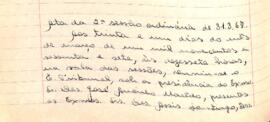 Ata da 2ª sessão ordinária de 31.3.67.
Aos trinta e um dias do mês
de março de um mil novecentos e
sessenta e sete, às dezessete horas,
na sala das sessões, reuniu-se o
E. Tribunal, sob a presidência do Exmo
Sr. Des. José Amando, presentes
os Exmos Srs. Des. Assis do